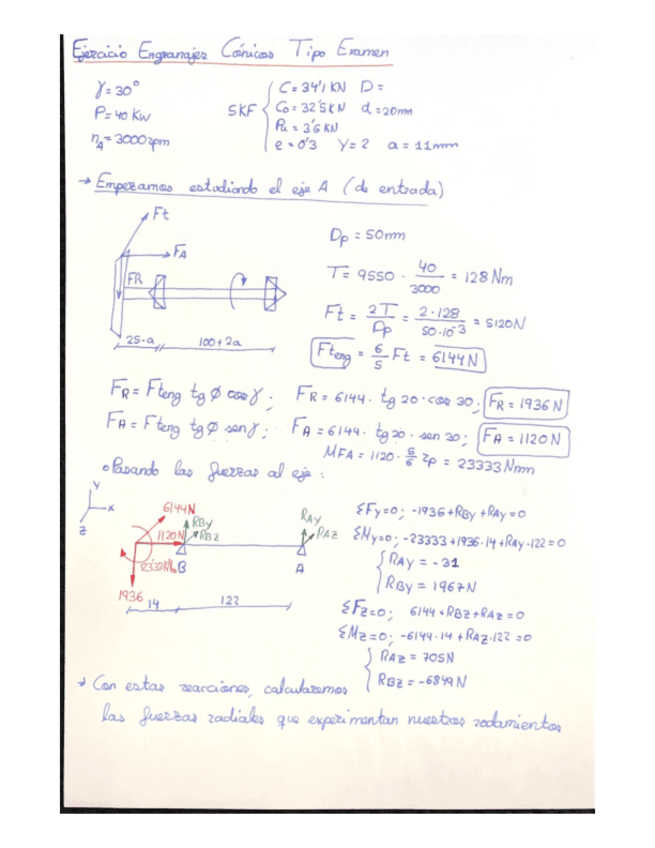 Ejercicio Engranajes Cónicos Tipo Examen
γ = 30°
P = 40 Kw
n_A = 3000 rpm
SKF
C = 34'1 KN D =
C0 = 32'5 KN d = 20mm
Pu = 3'6 KN
e = 0'3 Y = 2 a = 11mm
→ Empezamos estudiando el eje A (de entrada)
Ft
FA
FR
25-a
100+2a
Dp = 50mm
T = 9550 · 40/3000 = 128 Nm
Ft = 2T/Dp = 2·128/50·10^-3 = 5120N
Fteng = 6/5 Ft = 6144 N
FR = Fteng tg ϕ cos γ; FR = 6144 · tg 20 · cos 30; FR = 1936 N
FA = Fteng tg ϕ sen γ; FA = 6144 · tg 20 · sen 30; FA = 1120N
MFA = 1120 · 5/6 rp = 23333 Nmm
• Pasando las fuerzas al eje:
Y
X
Z
6144N
RBY
RBZ
1120N
B
1936
14
122
RAY
RAZ
A
ΣFy=0; -1936+RBy+RAy=0
ΣMy=0; -23333+1936·14+RAy·122=0
RAY = -31
RBY = 1967N
ΣFz=0; 6144+RBZ+RAZ=0
ΣMz=0; -6144·14+RAZ·122=0
RAZ = 705N
RBZ = -6849N
→ Con estas reacciones, calcularemos
las fuerzas radiales que experimentan nuestros rodamientos